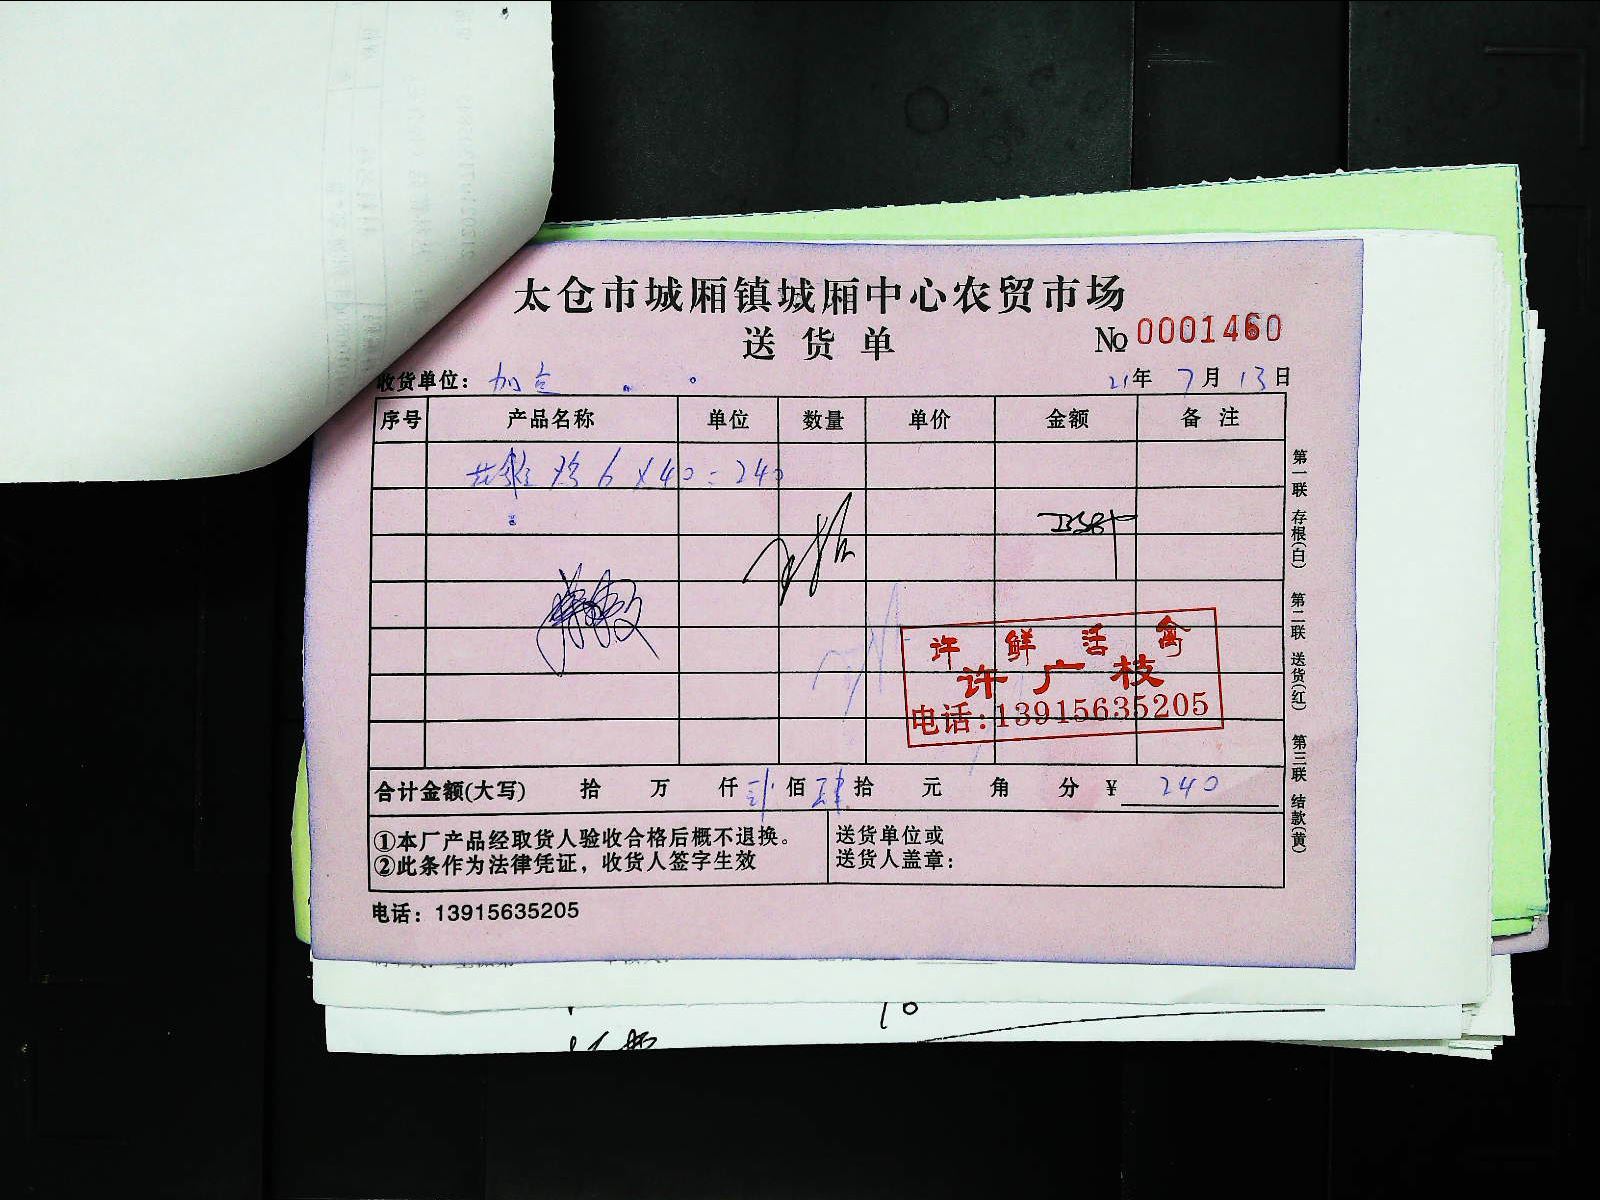 太仓市城厢镇城厢中心农贸市场
送货单
№ 0001460
收货单位： 21年 7月 13日
序号 产品名称 单位 数量 单价 金额 备注
鸡 6×40=240
许鲜活禽
许广枝
电话:13915635205
合计金额(大写) 拾 万 仟 贰佰 肆拾 元 角 分 ¥ 240
①本厂产品经取货人验收合格后概不退换。
②此条作为法律凭证，收货人签字生效
送货单位或
送货人盖章：
电话：13915635205
第一联 存根(白) 第二联 送货(红) 第三联 结款(黄)